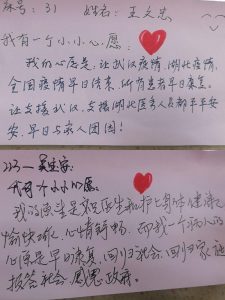 编号：31 姓名：王久忠
我有一个小小心愿：
我们心愿是，让武汉疫情，湖北疫情，
全国疫情早日结束，所有患者早日康复。
让支援武汉，支援湖北医务人员都平平安
安，早日与家人团圆！
我有一个小小心愿：
我的愿望是双色医生和护士身体健康
愉快 心情舒畅， 我一个病人的
心愿是早日康复，回归社会，回归家
报答社会，感恩政府。